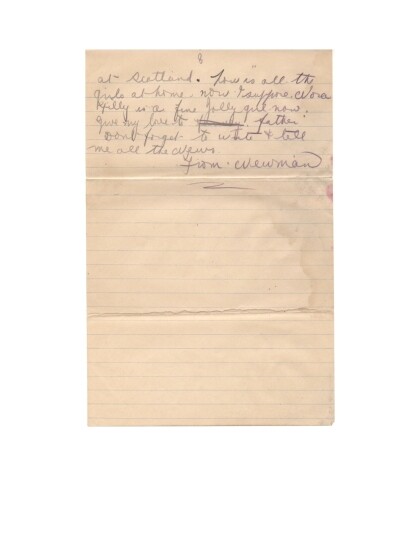 8
at Scotland. How is all the
girls at home now I suppose Nora
Hilly is a fine jolly girl now.
Give my love to father
Dont forget to write & tell
me all the News.
From. Newman